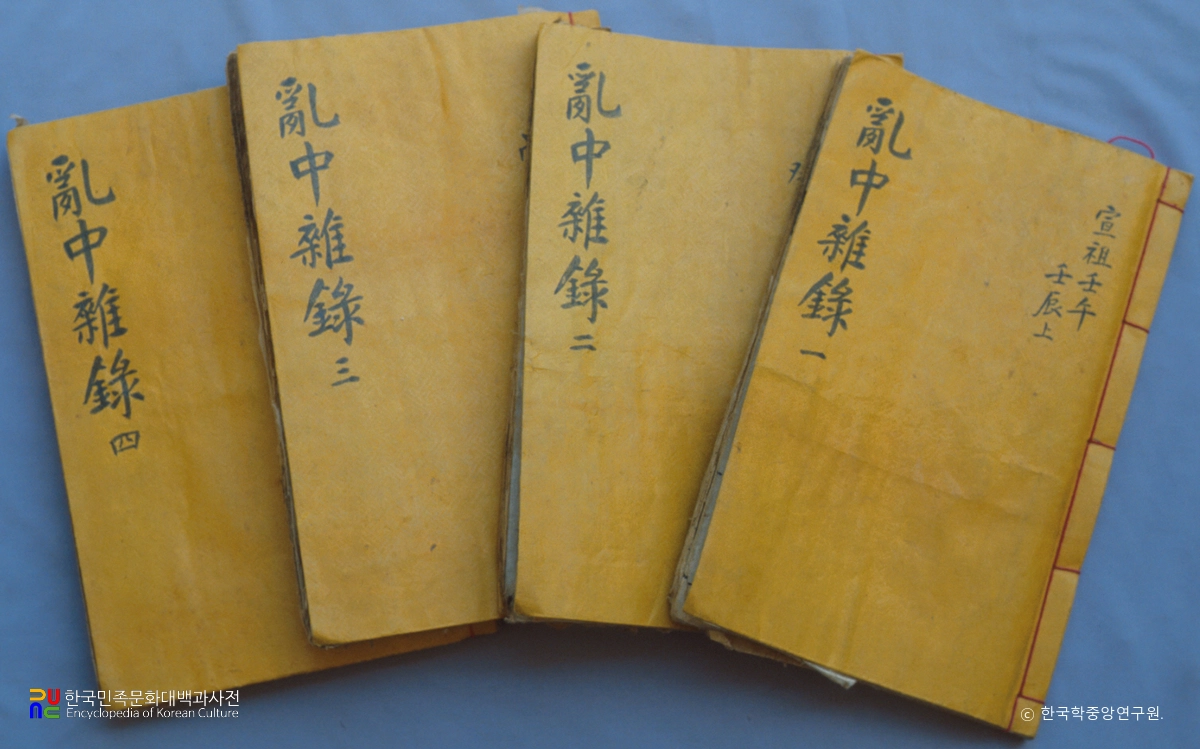 亂中雜錄 一
宣祖壬午
壬辰上
亂中雜錄 二
亂中雜錄 三
亂中雜錄 四
한국민족문화대백과사전
Encyclopedia of Korean Culture
ⓒ 한국학중앙연구원.